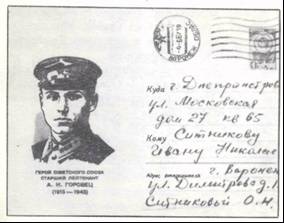 ВОРОНЕЖ
Куда г. Днепропетров
ул. Московская
дом 27 кв 65
Кому Ситникову
Ивану Николае
Адрес отправителя г. Воронеж
ул. Димитрова д. 1
Ситниковой О. М.
ГЕРОЙ СОВЕТСКОГО СОЮЗА
СТАРШИЙ ЛЕЙТЕНАНТ
А. К. ГОРОВЕЦ
(1915—1943)